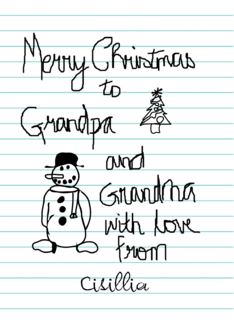 Merry Christmas
to
Grandpa
and
Grandma
with love
from
Cisillia